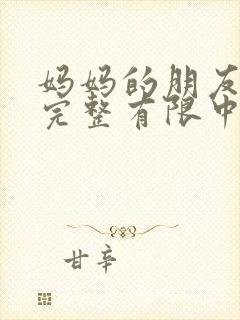 妈妈的朋友
完整有限中
甘辛